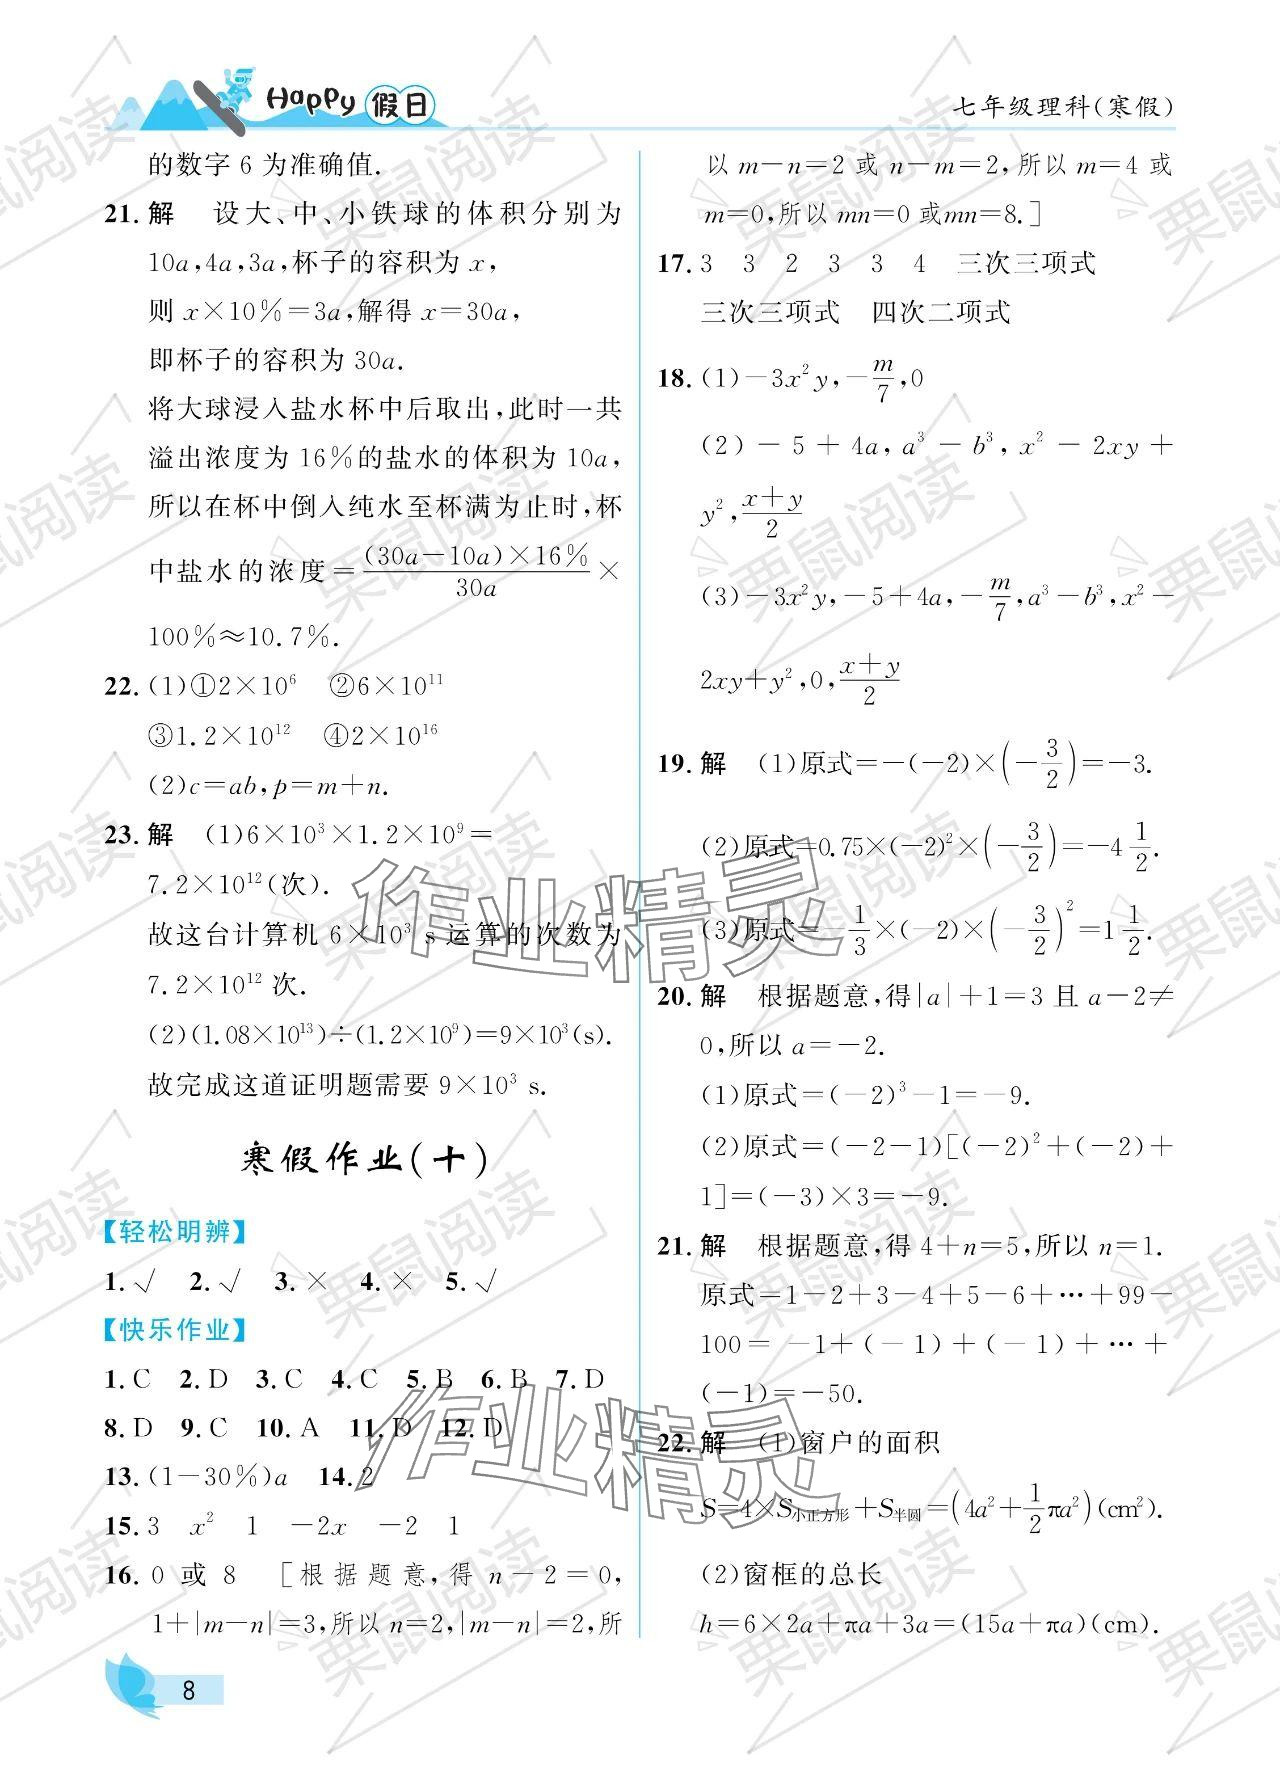 Happy 假日
七年级理科(寒假)
的数字 6 为准确值.
21. 解　设大、中、小铁球的体积分别为
10a,4a,3a,杯子的容积为 x,
则 x×10%=3a,解得 x=30a,
即杯子的容积为 30a.
将大球浸入盐水杯中后取出,此时一共
溢出浓度为 16%的盐水的体积为 10a,
所以在杯中倒入纯水至杯满为止时,杯
中盐水的浓度=\frac{(30a-10a)×16%}{30a}×
100%≈10.7%.
22. (1)①2×10⁶　②6×10¹¹
③1.2×10¹²　④2×10¹⁶
(2)c=ab,p=m+n.
23. 解　(1)6×10³×1.2×10⁹=
7.2×10¹²(次).
故这台计算机 6×10³ s 运算的次数为
7.2×10¹² 次.
(2)(1.08×10¹³)÷(1.2×10⁹)=9×10³(s).
故完成这道证明题需要 9×10³ s.
寒假作业(十)
【轻松明辨】
1. √　2. √　3. ×　4. ×　5. √
【快乐作业】
1. C　2. D　3. C　4. C　5. B　6. B　7. D
8. D　9. C　10. A　11. D　12. D
13. (1-30%)a　14. 2
15. 3　x²　1　-2x　-2　1
16. 0 或 8　[根据题意,得 n-2=0,
1+|m-n|=3,所以 n=2,|m-n|=2,所
以 m-n=2 或 n-m=2,所以 m=4 或
m=0,所以 mn=0 或mn=8.]
17. 3　3　2　3　3　4　三次三项式
三次三项式　四次二项式
18. (1)-3x²y,-\frac{m}{7},0
(2)-5+4a,a³-b³,x²-2xy+
y²,\frac{x+y}{2}
(3)-3x²y,-5+4a,-\frac{m}{7},a³-b³,x²-
2xy+y²,0,\frac{x+y}{2}
19. 解　(1)原式=-(-2)×(-\frac{3}{2})=-3.
(2)原式=0.75×(-2)²×(-\frac{3}{2})=-4\frac{1}{2}.
(3)原式=-\frac{1}{3}×(-2)×(-\frac{3}{2})²=1\frac{1}{2}.
20. 解　根据题意,得|a|+1=3 且 a-2≠
0,所以 a=-2.
(1)原式=(-2)³-1=-9.
(2)原式=(-2-1)[(-2)²+(-2)+
1]=(-3)×3=-9.
21. 解　根据题意,得 4+n=5,所以 n=1.
原式=1-2+3-4+5-6+…+99-
100=-1+(-1)+(-1)+…+
(-1)=-50.
22. 解　(1)窗户的面积
S=4×S小正方形+S半圆=(4a²+\frac{1}{2}πa²)(cm²).
(2)窗框的总长
h=6×2a+πa+3a=(15a+πa)(cm).
8
作业精灵
作业精灵
栗鼠阅读